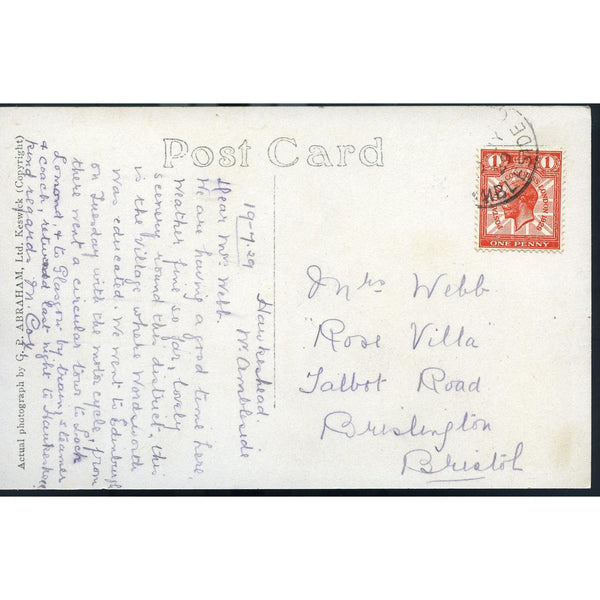 Post Card
Hawkshead.
Nr Ambleside
19-7.29
Dear Mrs Webb.
We are having a good time here,
Weather fine so far, lovely
scenery round this district, this
is the Village where Wordsworth
was educated. We went to Edinburgh
on Tuesday with the motor cycle, from
there went a circular tour to Loch
Lomond & to Glasgow by train, steamer
& coach, returned last night to Hawkshead
kind regards M. Cox
Actual photograph by G. P. ABRAHAM, Ltd. Keswick (Copyright)
Mrs Webb
"Rose Villa"
Talbot Road
Brislington
Bristol
1D 1D
POSTAL UNION CONGRESS LONDON 1929
ONE PENNY